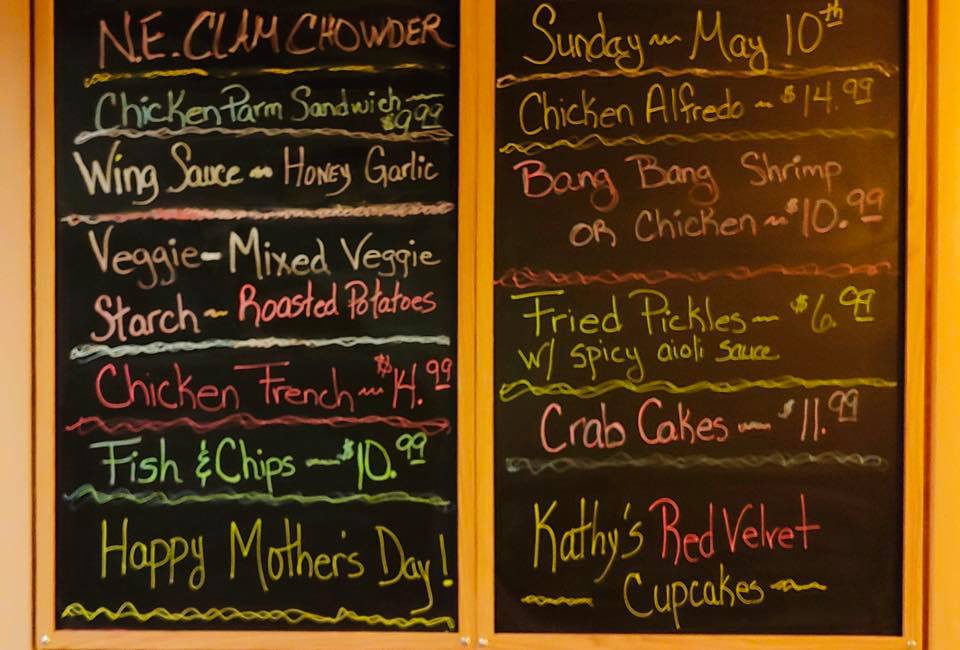 N.E. CLAM CHOWDER
Chicken Parm Sandwich~
$9.99
Wing Sauce ~ Honey Garlic
Veggie - Mixed Veggie
Starch ~ Roasted Potatoes
Chicken French ~ $14.99
Fish & Chips ~ $10.99
Happy Mother's Day!
Sunday ~ May 10th
Chicken Alfredo ~ $14.99
Bang Bang Shrimp
OR Chicken ~ $10.99
Fried Pickles ~ $6.99
w/ spicy aioli sauce
Crab Cakes ~ $11.99
Kathy's Red Velvet
~ Cupcakes ~